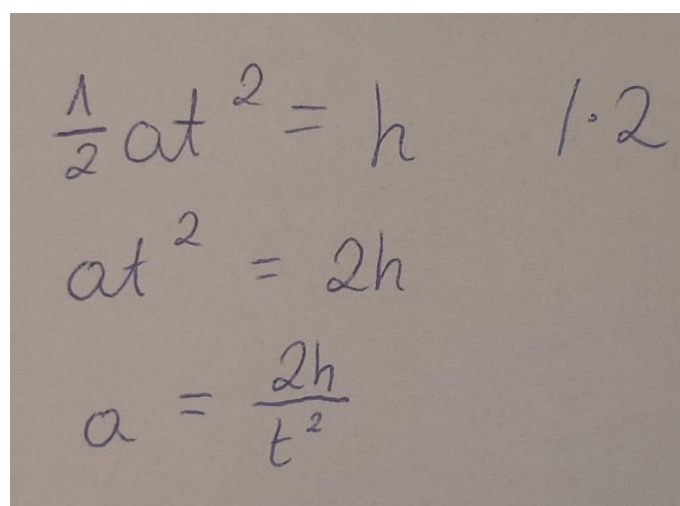 ½at² = h /·2
at² = 2h
a = 2h/t²